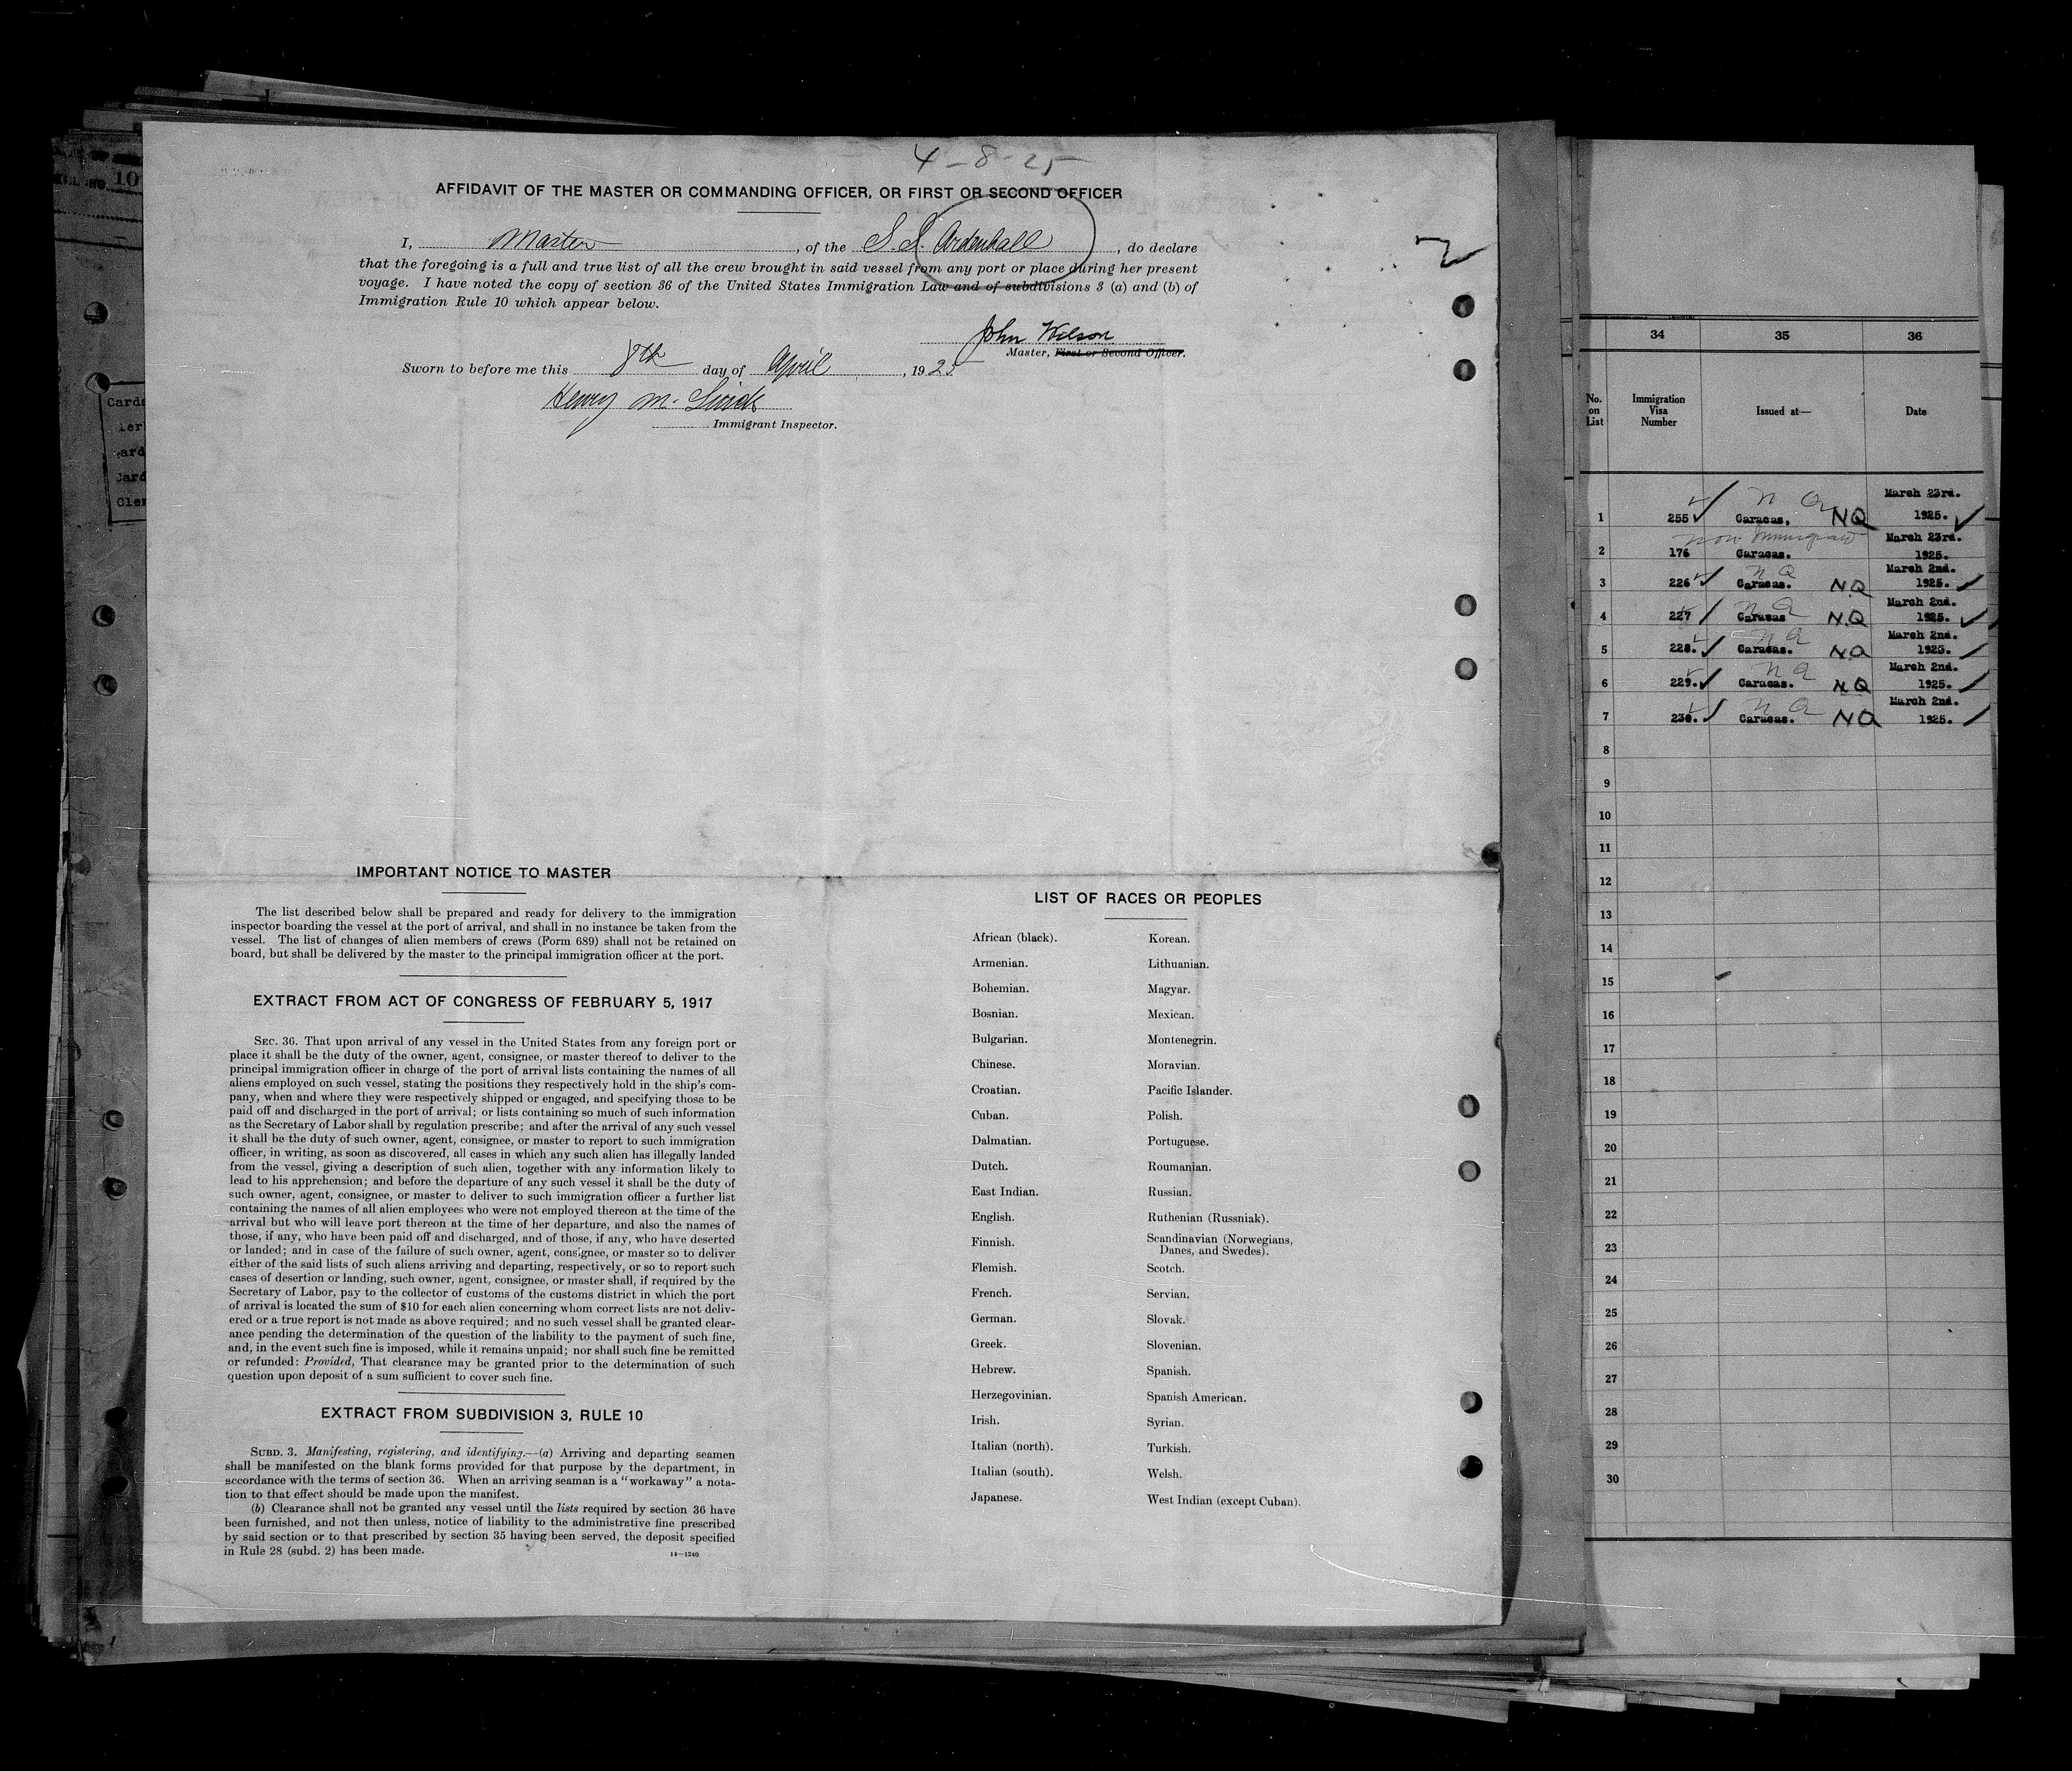 4-8-25
AFFIDAVIT OF THE MASTER OR COMMANDING OFFICER, OR FIRST OR SECOND OFFICER
I, Master, of the S.S. Ardenhall, do declare
that the foregoing is a full and true list of all the crew brought in said vessel from any port or place during her present
voyage. I have noted the copy of section 36 of the United States Immigration Law and of subdivisions 3 (a) and (b) of
Immigration Rule 10 which appear below.
John Wilson
Master, First or Second Officer.
Sworn to before me this 8th day of April, 1925
Henry M.
Immigrant Inspector.
IMPORTANT NOTICE TO MASTER
The list described below shall be prepared and ready for delivery to the immigration
inspector boarding the vessel at the port of arrival, and shall in no instance be taken from the
vessel. The list of changes of alien members of crews (Form 689) shall not be retained on
board, but shall be delivered by the master to the principal immigration officer at the port.
EXTRACT FROM ACT OF CONGRESS OF FEBRUARY 5, 1917
SEC. 36. That upon arrival of any vessel in the United States from any foreign port or
place it shall be the duty of the owner, agent, consignee, or master thereof to deliver to the
principal immigration officer in charge of the port of arrival lists containing the names of all
aliens employed on such vessel, stating the positions they respectively hold in the ship's com-
pany, when and where they were respectively shipped or engaged, and specifying those to be
paid off and discharged in the port of arrival; or lists containing so much of such information
as the Secretary of Labor shall by regulation prescribe; and after the arrival of any such vessel
it shall be the duty of such owner, agent, consignee, or master to report to such immigration
officer, in writing, as soon as discovered, all cases in which any such alien has illegally landed
from the vessel, giving a description of such alien, together with any information likely to
lead to his apprehension; and before the departure of any such vessel it shall be the duty of
such owner, agent, consignee, or master to deliver to such immigration officer a further list
containing the names of all alien employees who were not employed thereon at the time of the
arrival but who will leave port thereon at the time of her departure, and also the names of
those, if any, who have been paid off and discharged, and of those, if any, who have deserted
or landed; and in case of the failure of such owner, agent, consignee, or master so to deliver
either of the said lists of such aliens arriving and departing, respectively, or so to report such
cases of desertion or landing, such owner, agent, consignee, or master shall, if required by the
Secretary of Labor, pay to the collector of customs of the customs district in which the port
of arrival is located the sum of $10 for each alien concerning whom correct lists are not deliv-
ered or a true report is not made as above required; and no such vessel shall be granted clear-
ance pending the determination of the question of the liability to the payment of such fine,
and, in the event such fine is imposed, while it remains unpaid; nor shall such fine be remitted
or refunded: Provided, That clearance may be granted prior to the determination of such
question upon deposit of a sum sufficient to cover such fine.
EXTRACT FROM SUBDIVISION 3, RULE 10
SUBD. 3. Manifesting, registering, and identifying.—(a) Arriving and departing seamen
shall be manifested on the blank forms provided for that purpose by the department, in
accordance with the terms of section 36. When an arriving seaman is a "workaway" a nota-
tion to that effect should be made upon the manifest.
(b) Clearance shall not be granted any vessel until the lists required by section 36 have
been furnished, and not then unless, notice of liability to the administrative fine prescribed
by said section or to that prescribed by section 35 having been served, the deposit specified
in Rule 28 (subd. 2) has been made.
14—1240
LIST OF RACES OR PEOPLES
African (black).
Armenian.
Bohemian.
Bosnian.
Bulgarian.
Chinese.
Croatian.
Cuban.
Dalmatian.
Dutch.
East Indian.
English.
Finnish.
Flemish.
French.
German.
Greek.
Hebrew.
Herzegovinian.
Irish.
Italian (north).
Italian (south).
Japanese.
Korean.
Lithuanian.
Magyar.
Mexican.
Montenegrin.
Moravian.
Pacific Islander.
Polish.
Portuguese.
Roumanian.
Russian.
Ruthenian (Russniak).
Scandinavian (Norwegians,
Danes, and Swedes).
Scotch.
Servian.
Slovak.
Slovenian.
Spanish.
Spanish American.
Syrian.
Turkish.
Welsh.
West Indian (except Cuban).
34 35 36
No. on List Immigration Visa Number Issued at— Date
1 255 Caracas. NQ March 23rd. 1925.
2 176 Non Immigrant Caracas. March 23rd. 1925.
3 226 NQ Caracas. NQ March 2nd. 1925.
4 227 NQ Caracas NQ March 2nd. 1925.
5 228. NQ Caracas. NQ March 2nd. 1925.
6 229. NQ Caracas. NQ March 2nd. 1925.
7 230. NQ Caracas. NQ March 2nd. 1925.
8
9
10
11
12
13
14
15
16
17
18
19
20
21
22
23
24
25
26
27
28
29
30